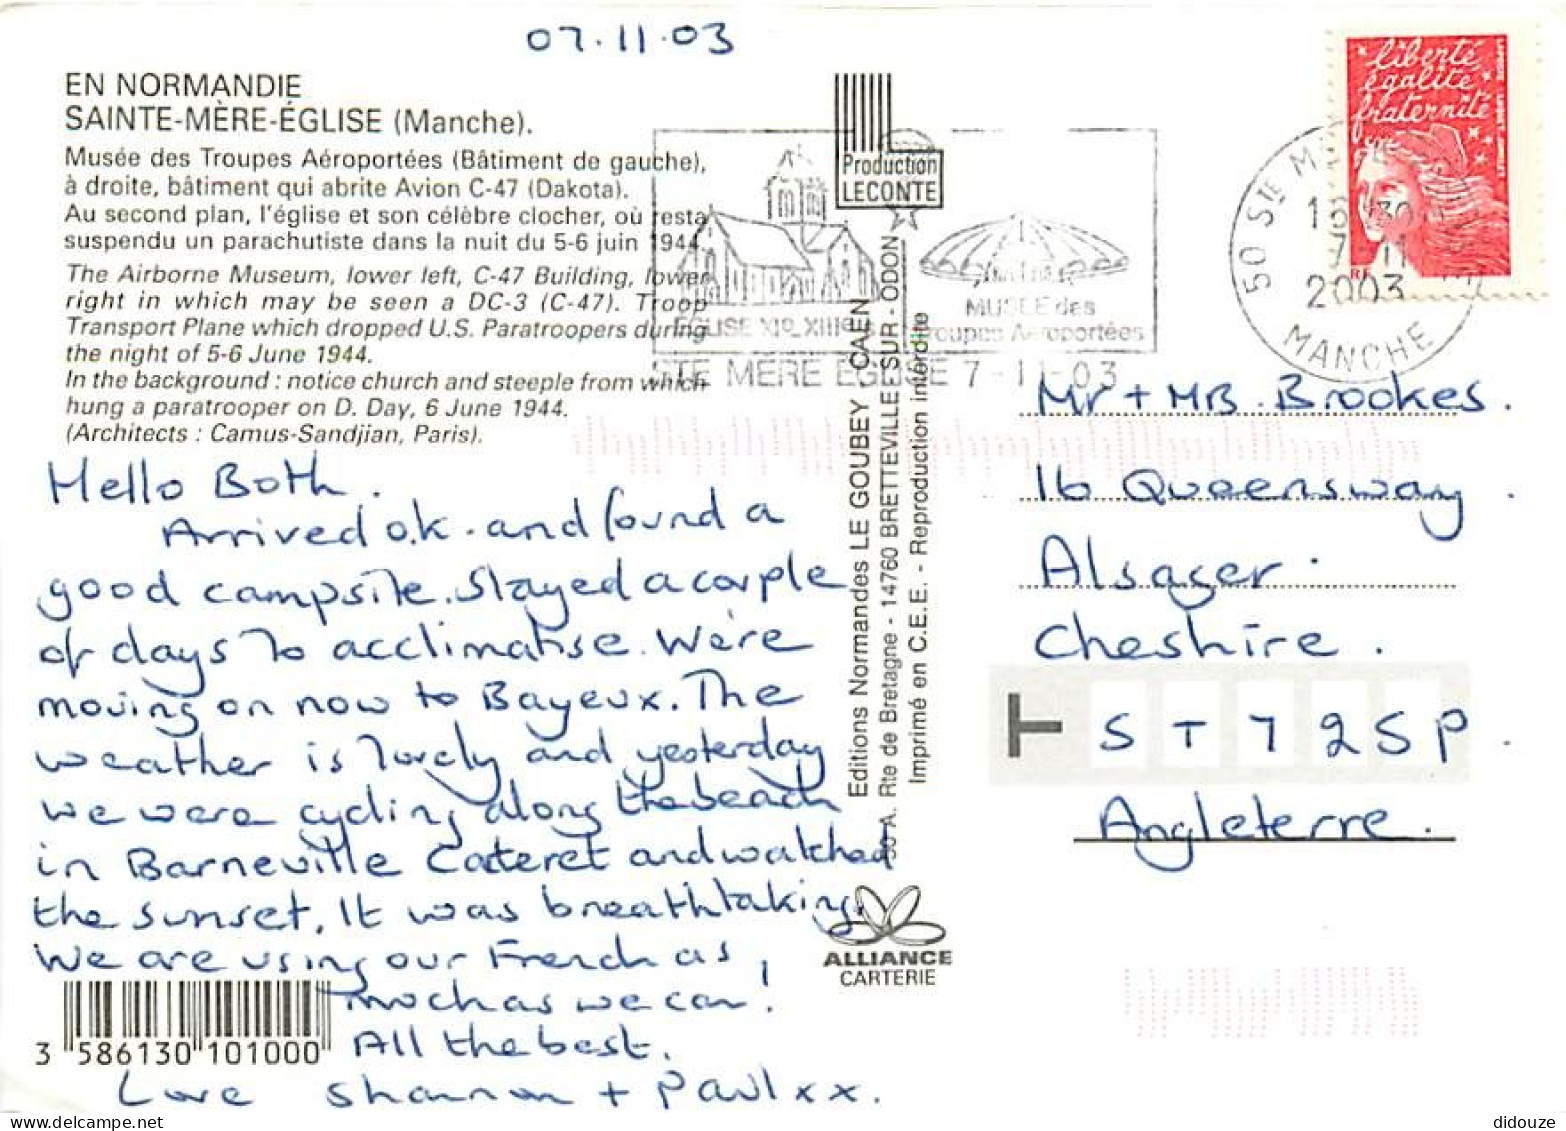 07.11.03
EN NORMANDIE
SAINTE-MÈRE-ÉGLISE (Manche).
Musée des Troupes Aéroportées (Bâtiment de gauche),
à droite, bâtiment qui abrite Avion C-47 (Dakota).
Au second plan, l'église et son célèbre clocher, où resta
suspendu un parachutiste dans la nuit du 5-6 juin 1944.
The Airborne Museum, lower left, C-47 Building, lower
right in which may be seen a DC-3 (C-47). Troop
Transport Plane which dropped U.S. Paratroopers during
the night of 5-6 June 1944.
In the background : notice church and steeple from which
hung a paratrooper on D. Day, 6 June 1944.
(Architects : Camus-Sandjian, Paris).
Hello Both.
Arrived o.k. and found a
good campsite. Stayed a couple
of days to acclimatise. We're
moving on now to Bayeux. The
weather is lovely and yesterday
we were cycling along the beach
in Barneville Cateret and watched
the sunset. It was breathtaking.
We are using our French as
much as we can!
All the best.
Love Shannon + Paul xx.
3 586130 101000
Production
LECONTE
EGLISE XIe XIIIe S
MUSEE des
Troupes Aéroportées
STE MERE EGLISE 7-11-03
Editions Normandes LE GOUBEY CAEN
30 A. Rte de Bretagne - 14760 BRETTEVILLE SUR - ODON
Imprimé en C.E.E. - Reproduction interdite
ALLIANCE
CARTERIE
liberté
égalité
fraternité
RF
50 STE MERE EGLISE
7 11
2003
MANCHE
Mr + MB. Brookes.
16 Queensway.
Alsager.
Cheshire.
T ST7 2SP.
Angleterre.
didouze